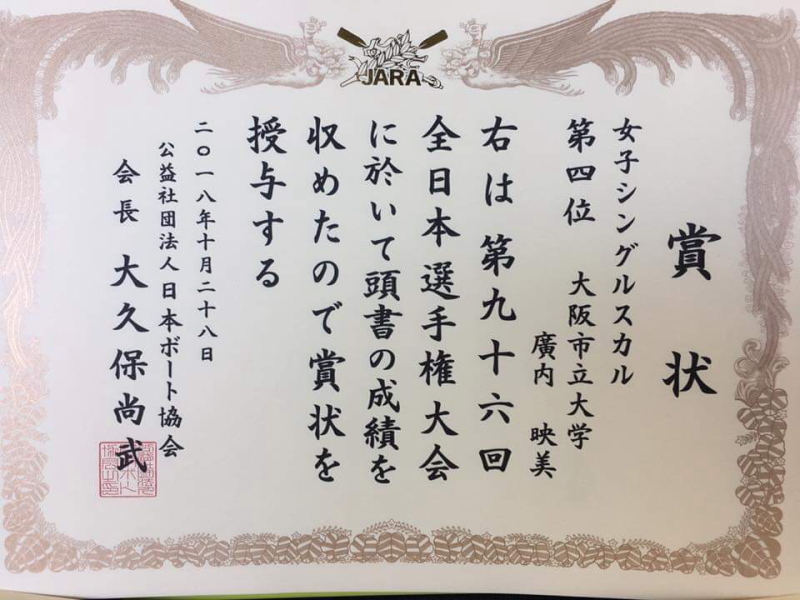 JARA
賞状
女子シングルスカル
第四位 大阪市立大学
廣内 映美
右は第九十六回
全日本選手権大会
に於いて頭書の成績を
収めたので賞状を
授与する
二〇一八年十月二十八日
公益社団法人日本ボート協会
会長 大久保尚武